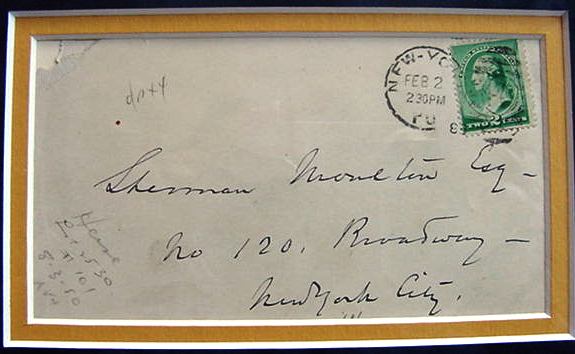 NEW-YO
FEB 2
230PM
8
TWO 2 CENTS
Sherman Moulton Esq -
No 120. Broadway -
New York City.